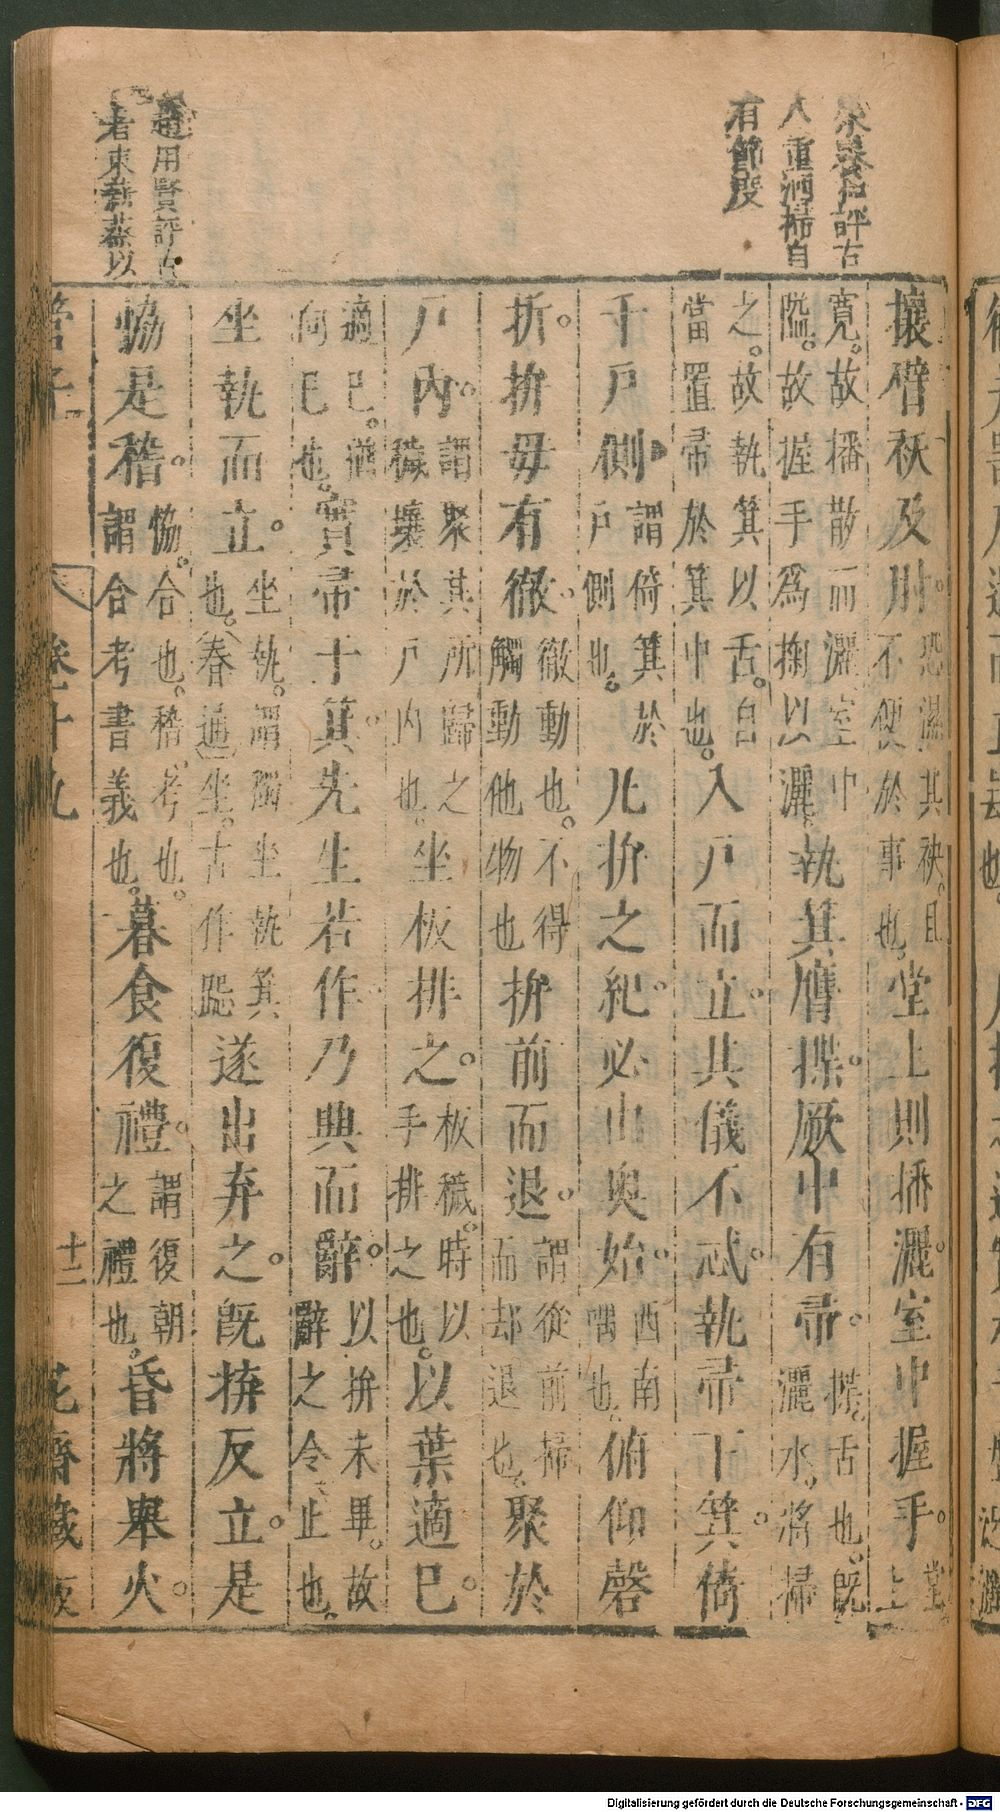 朱養和評古
人重洒掃自
有節段
攘臂袂及肘。恐濕其袂。且不便於事也。堂上則播灑。室中握手。堂上
寬。故播散而灑。室中隘。故握手為掬以灑。執箕膺揲。厥中有帚。揲。舌也。既灑水。將掃
之。故執箕以舌。自當置帚於箕中也。入戶而立。其儀不忒。執帚下箕。倚
于戶側。謂倚箕於戶側也。凡拚之紀。必由奧始。西南隅也。俯仰磬
折。拚毋有徹。徹動也。不得觸動他物也拚前而退。謂從前掃而却退也。聚於
戶內。謂聚其所歸之穢壤於戶內也坐板排之。板穢。時以手排之也。以葉適已。
適已。猶向已也。實帚于箕。先生若作。乃興而辭。以拚未畢。故辭之令止也。
坐執而立。坐執。謂獨坐執箕也。(春通)坐。古作跽遂出弃之。既拚反立。是
恊是稽。恊。合也。稽。考也。謂合考書義也。暮食復禮。謂復朝之禮也。昏將舉火。
趙用賢評古
者束薪蒸以
管子
卷十九
十二
花齋藏板
Digitalisierung gefördert durch die Deutsche Forschungsgemeinschaft - DFG